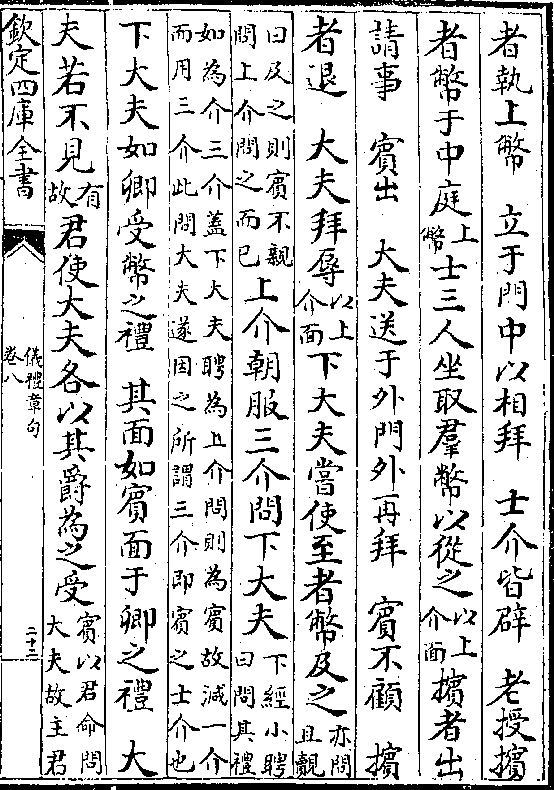 者執上幣　立于門中以相拜　士介皆辟　老授擯
者幣于中庭上幣士三人坐取羣幣以從之以上介面擯者出
請事　賓出　大夫送于外門外再拜　賓不顧　擯
者退　大夫拜辱以上介面下大夫嘗使至者幣及之亦問且覿
曰及之則賓不親問上介問之而已上介朝服三介問下大夫下經小聘曰問其禮
如為介三介蓋下大夫聘為上介問則為賓故減一介而用三介此問大夫遂因之所謂三介即賓之士介也
下大夫如卿受幣之禮　其面如賓面于卿之禮　大
夫若不見有故君使大夫各以其爵為之受賓以君命問大夫故主君
欽定四庫全書
儀禮章句
卷八
二十三